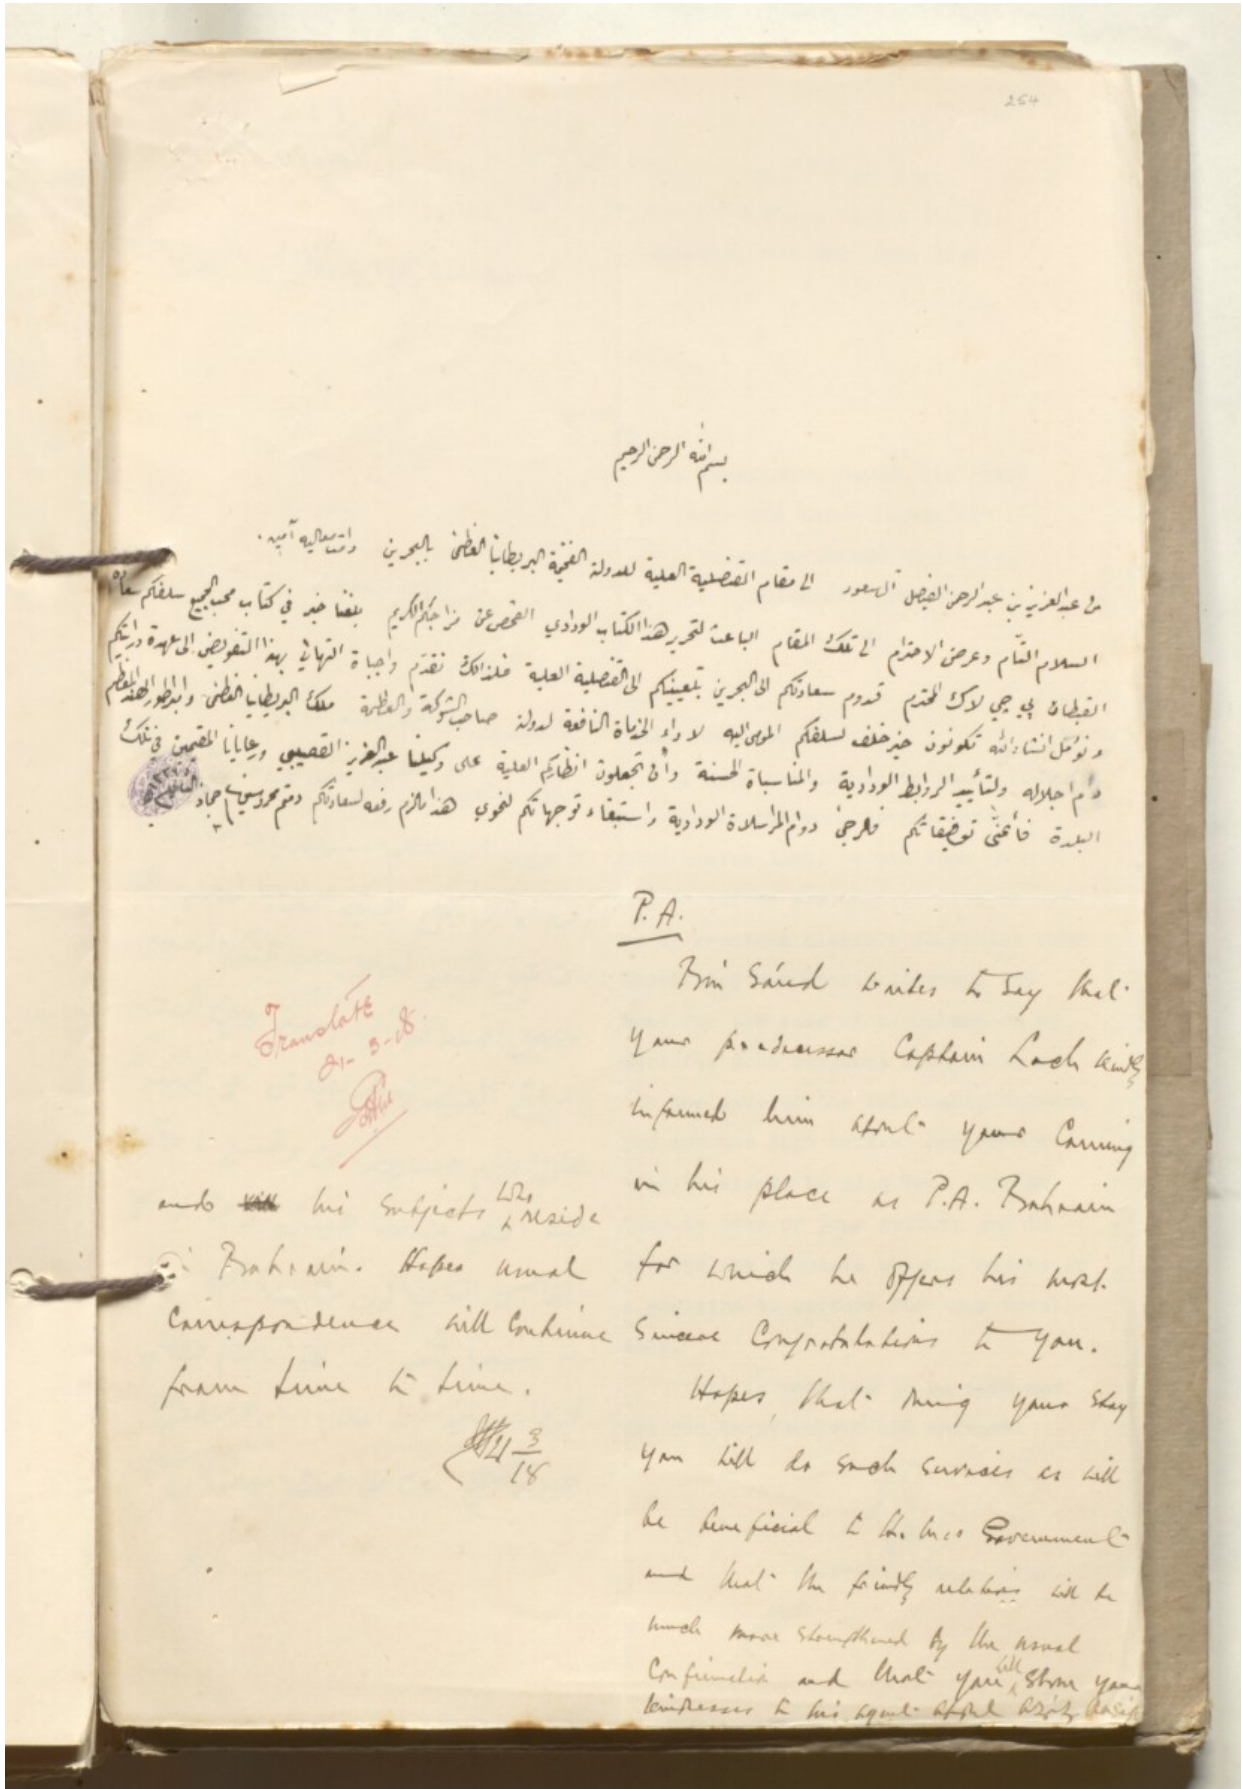 254
بسم الله الرحمن الرحيم
من عبد العزيز بن عبد الرحمن الفيصل آل سعود الى مقام القنصلية العلية للدولة الفخيمة البريطانيا العظمى بالبحرين دامت معاليه آمين.
السلام التام وعرض الاحترام الى تلك المقام الباعث لتحرير هذا الكتاب الودادي الفحص عن مزاجكم الكريم بلغنا خبر في كتاب محب الجميع سلفكم سعادة
القبطان بي جي لاك المحترم قدوم سعادتكم الى البحرين بتعيينكم الى القنصلية العلية فلذالك نقدم واجباة التهاني بهذا التفويض الى عهدة درايتكم
ونؤمل انشاء الله تكونون خير خلف لسلفكم المومى اليه لاداء الخدماة النافعة لدولة صاحب الشوكة والعظمة ملك البريطانيا العظمى وامبراطور الهند المعظم
دام اجلاله ولتأييد الروابط الودادية والمناسباة الحسنة وأن تجعلون انظاركم العلية على وكيلنا عبد العزيز القصيبي ورعايانا المقيمين في تلك
البلدة فأتمنى توفيقاتكم فلرجى دوام المراسلاة الودادية واستبقاء توجهاتكم لنحوي هذا مالزم رفعه لسعادتكم ودمتم محروسين
P.A.
Bin Sa'ud writes to say that
your predecessor Captain Loch kindly
informed him about your coming
in his place as P.A. Bahrain
for which he offers his most
sincere congratulations to you.
Hopes, that during your stay
you will do such services as will
be beneficial to the two Government
and that the friendly relations will be
much more strengthened by the usual
and that you will show your
kindnesses to his agent Abdul Aziz
Translate
21-3-18.
and his subjects who reside
in Bahrain. Hopes usual
correspondence will continue
from time to time.
21 3/18